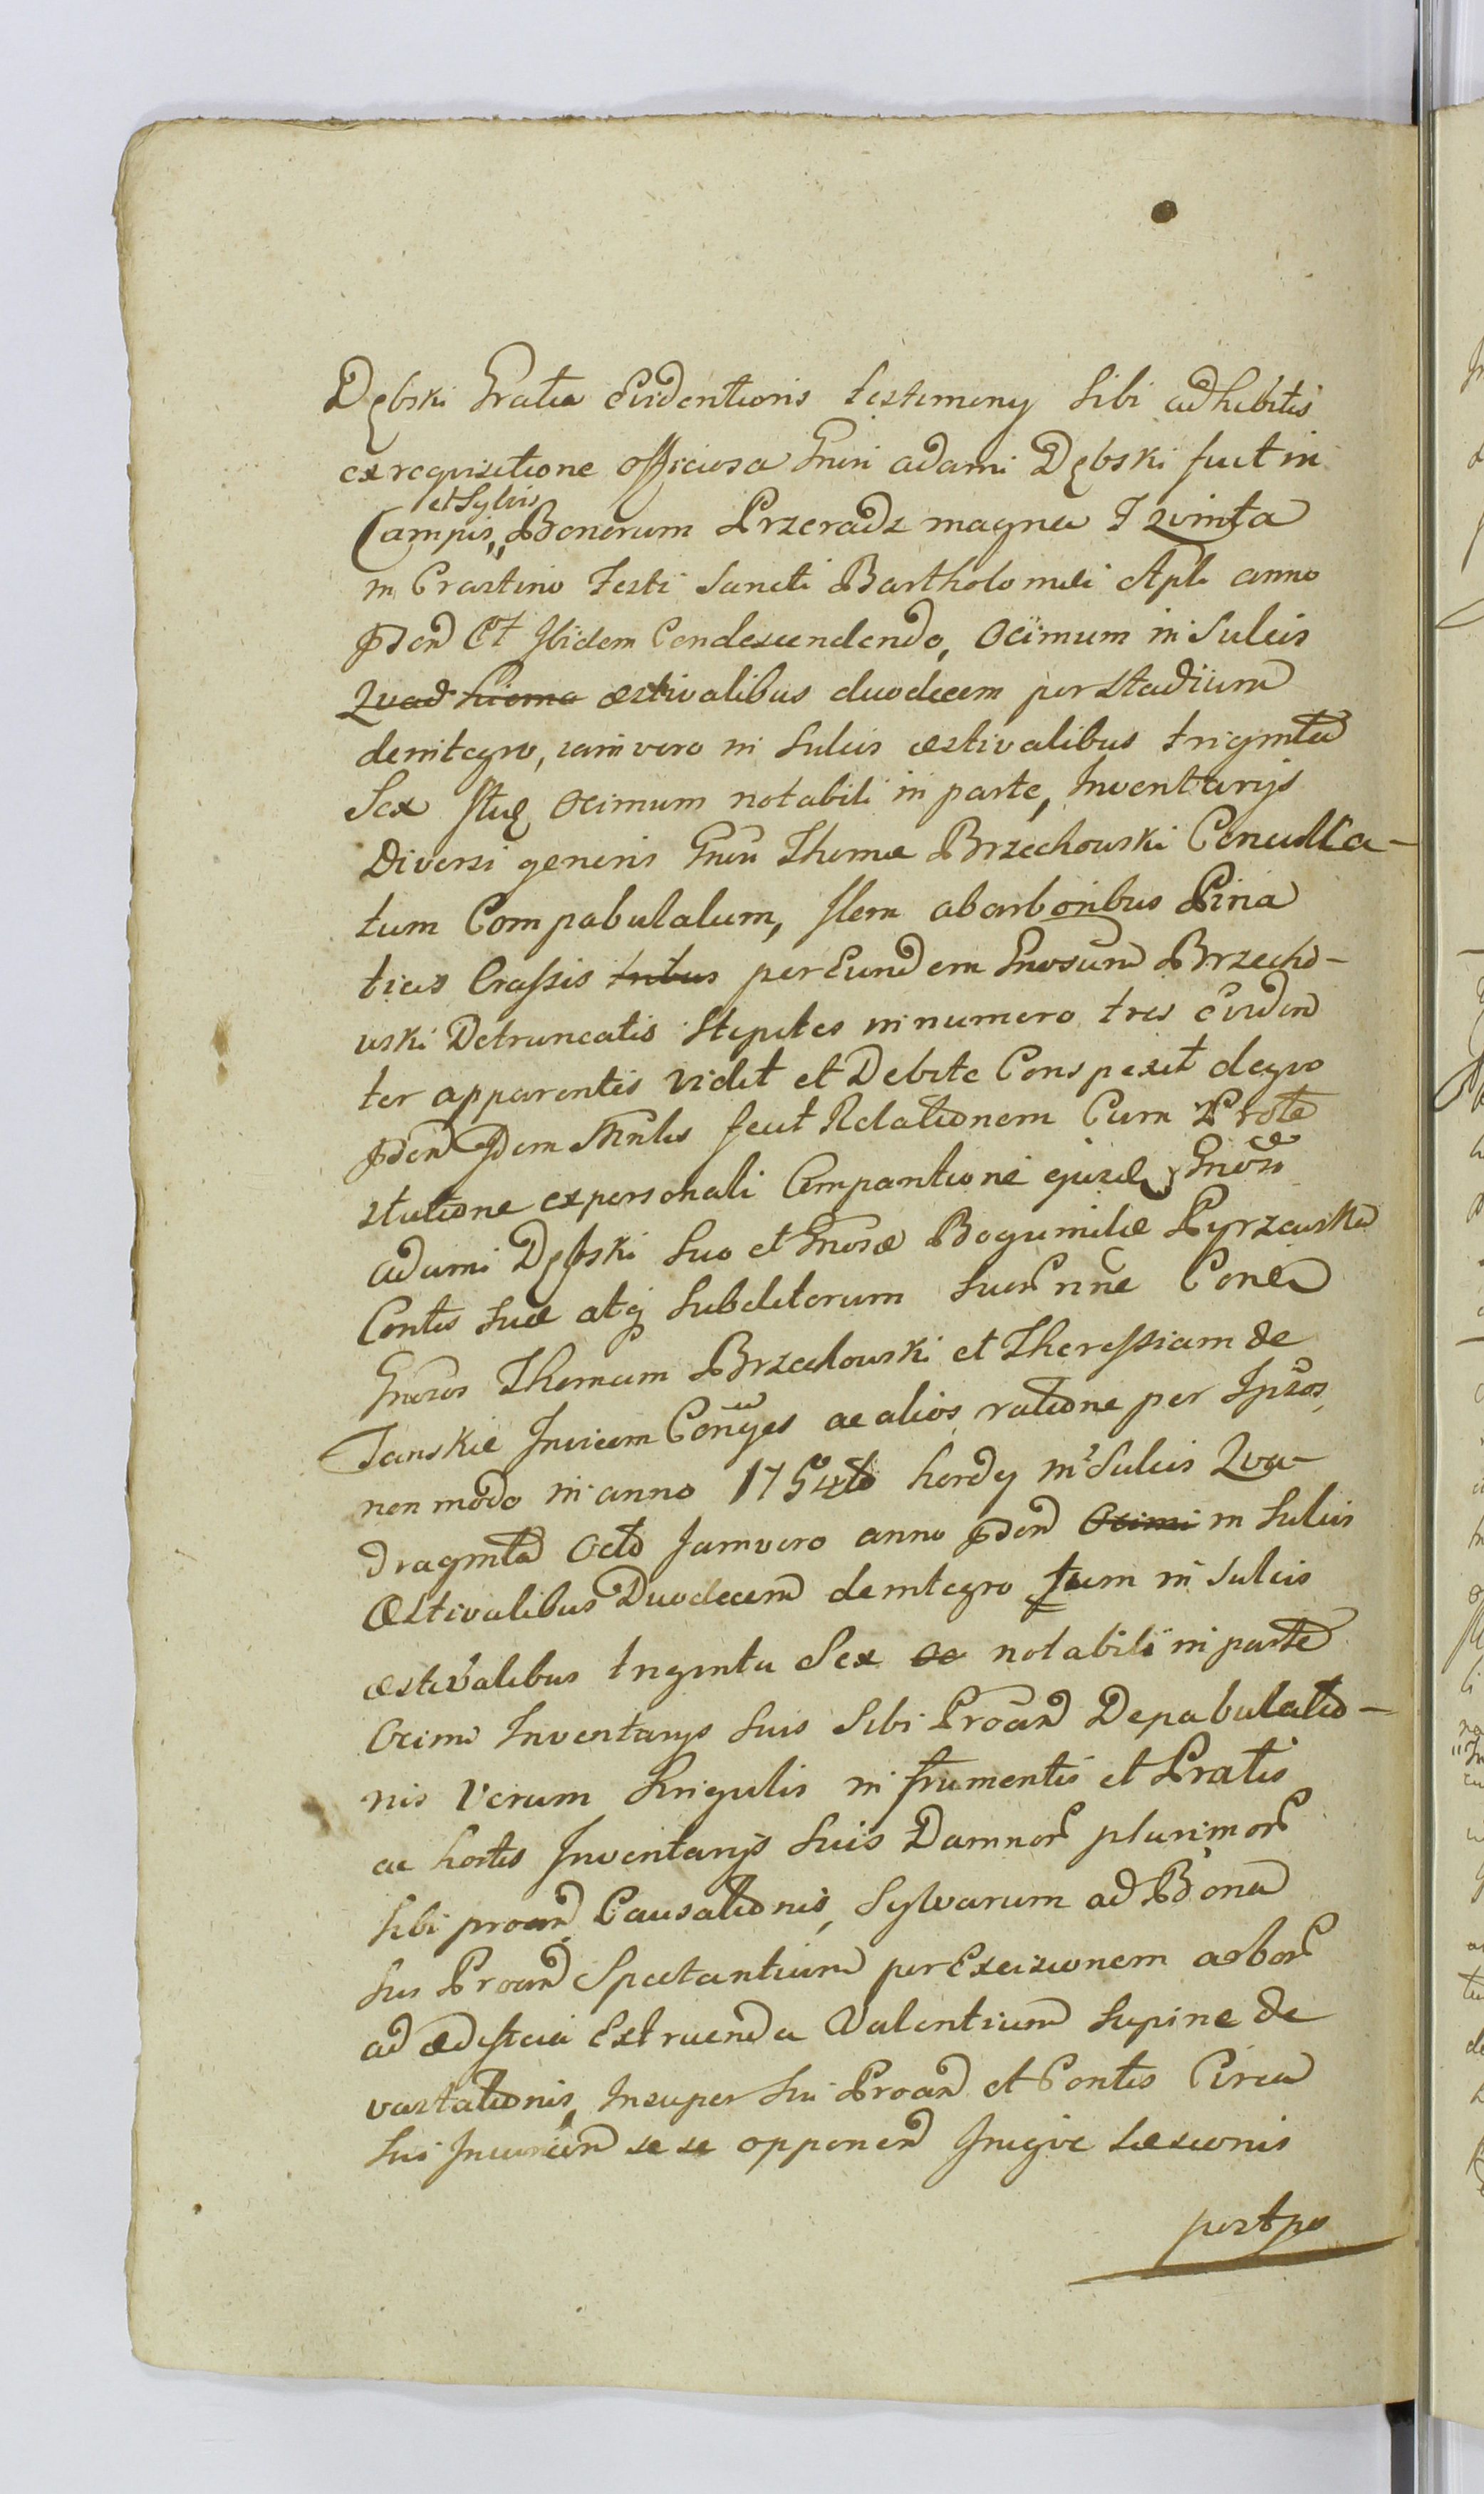 Dębski Gratia Evidentioris testimony Sibi adhibitis
ex requisitione officiosa Gnsi adami Dębski fuit in
et Sylvis
Campis,, Bonorum Przeradz magna I Zvinta
in Crastino Festi Sancti Bartholomei Apli anno
pnden Et Ibidem Condescendendo, Ocimum in Sulcis
Quad hiema æstivalibus duodecem per Stadium
de integro, iam vero in Sulcis æstivalibus triginta
Sex Itiq Ocimum notabili in parte, Inventarijs
Diversi generis Gnsi Thomæ Brzechowski Conculca-
tum Compabulatum, Item ab arboribus Pinia
ticis Crassis tribus per Eundem Gnosum Brzecho-
wski Detruncatis Stipites in numero tres Eviden
ter apparentis vidit et Debite Conspexit de quo
pnden Idem Mnlis fecit Relationem Cum Prote
statione ex personali Compartione ejusd Gnosi
adami Dębski Suo et Gnosæ Bogumilæ Pyrzewska
Contis Suæ atq Subditorum Suor nne Contra
Gnosos Thomam Brzechowski et Theressiam de
Janskie Invicem Conjges ac alios ratione per Ipsos
non modo in anno 1754to hordej in Sulcis Qua-
draginta Octo Jam vero anno pnden Ocimi in Sulcis
Æstivalibus Duodecem de integro tum in Sulcis
æstivalibus triginta Sex Oc notabili in parte
Ocimi Inventarijs Suis Sibi Proan Depabulatio-
nis Verum Singulis in frumentis et Pratis
ac hortis Inventarijs Suis Damnor plurimor
Sibi proan Causationis, Sylvarum ad Bona
Sua Proan Spectantium per Excizionem arbor
ad ædificia Extruenda Valentium Supine de
vastationis, Insuper Sui Proan et Contis Circa
Sui se se opponen Iniqve Læsionis
post po